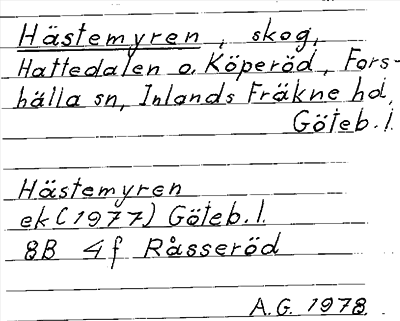 Hästemyren, skog,
Hattedalen o. Köperöd, Fors-
hälla sn, Inlands Fräkne hd,
Göteb. l.
Hästemyren
ek (1977) Göteb. l.
8B 4f Råsseröd
A.G. 1978.